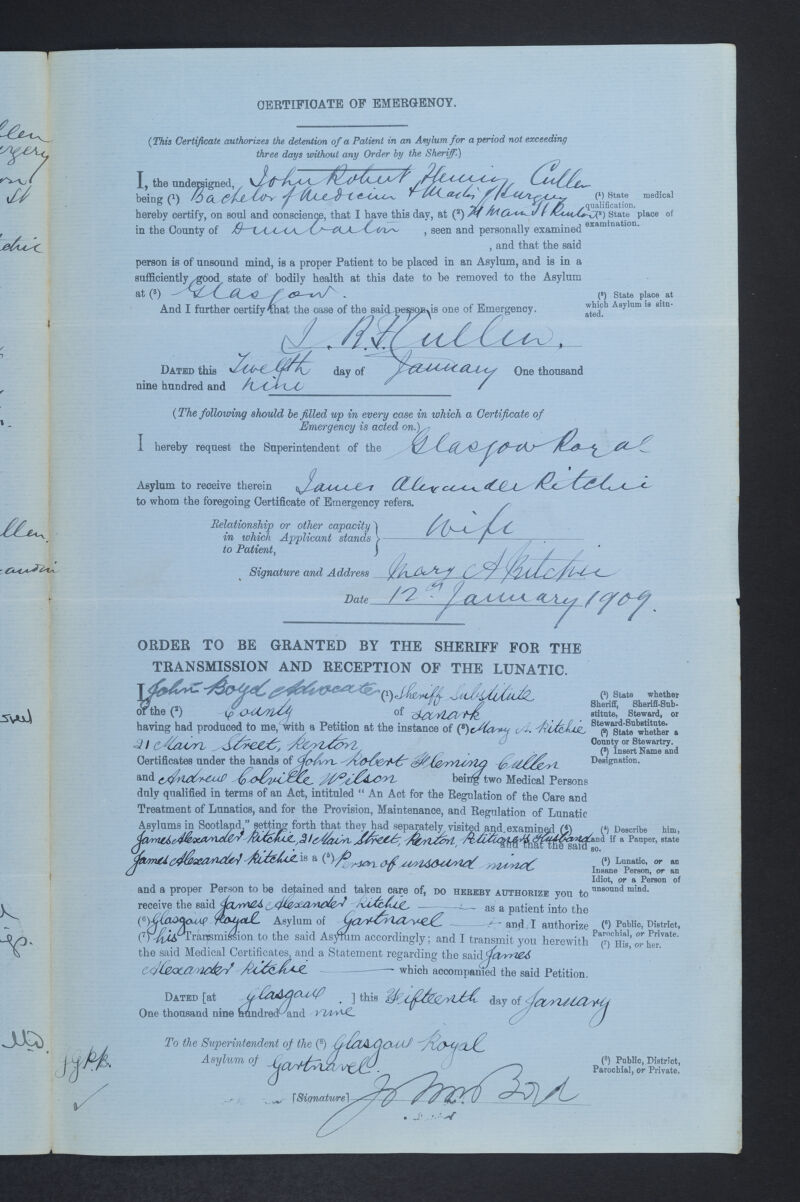 CERTIFICATE OF EMERGENCY.
(This Certificate authorizes the detention of a Patient in an Asylum for a period not exceeding
three days without any Order by the Sheriff.)
I, the undersigned, John Robert Fleming Cullen
being (1) Bachelor of Medicine & Master of Surgery
(1) State medical
qualification.
hereby certify, on soul and conscience, that I have this day, at (2) 21 Main St Renton
(2) State place of
examination.
in the County of Dumbarton , seen and personally examined
, and that the said
person is of unsound mind, is a proper Patient to be placed in an Asylum, and is in a
sufficiently good state of bodily health at this date to be removed to the Asylum
at (3) Glasgow.
(3) State place at
which Asylum is situ-
ated.
And I further certify that the case of the said person is one of Emergency.
J. R. F. Cullen.
DATED this Twelfth day of January One thousand
nine hundred and nine
(The following should be filled up in every case in which a Certificate of
Emergency is acted on.)
I hereby request the Superintendent of the Glasgow Royal
Asylum to receive therein James Alexander Ritchie
to whom the foregoing Certificate of Emergency refers.
Relationship or other capacity
in which Applicant stands
to Patient,
Wife
Signature and Address Mary A Ritchie
Date 12th January 1909.
ORDER TO BE GRANTED BY THE SHERIFF FOR THE
TRANSMISSION AND RECEPTION OF THE LUNATIC.
I John Boyd Advocate (1) Sheriff Substitute
of the (2) County of Lanark
(1) State whether
Sheriff, Sheriff-Sub-
stitute, Steward, or
Steward-Substitute.
(2) State whether a
County or Stewartry.
(3) Insert Name and
Designation.
having had produced to me, with a Petition at the instance of (3) Mary A. Ritchie
21 Main Street, Renton
Certificates under the hands of John Robert Fleming Cullen
and Andrew Colville Wilson being two Medical Persons
duly qualified in terms of an Act, intituled "An Act for the Regulation of the Care and
Treatment of Lunatics, and for the Provision, Maintenance, and Regulation of Lunatic
Asylums in Scotland," setting forth that they had separately visited and examined (4)
James Alexander Ritchie, 21 Main Street, Renton, Petitioner's Husband
and that the said
(4) Describe him,
and if a Pauper, state
so.
James Alexander Ritchie is a (5) Person of unsound mind
(5) Lunatic, or an
Insane Person, or an
Idiot, or a Person of
unsound mind.
and a proper Person to be detained and taken care of, DO HEREBY AUTHORIZE you to
receive the said James Alexander Ritchie as a patient into the
(6) Glasgow Royal Asylum of Gartnavel and I authorize
(7) his Transmission to the said Asylum accordingly; and I transmit you herewith
(6) Public, District,
Parochial, or Private.
(7) His, or her.
the said Medical Certificates, and a Statement regarding the said James
Alexander Ritchie which accompanied the said Petition.
DATED [at Glasgow ] this Fifteenth day of January
One thousand nine hundred and nine
To the Superintendent of the (8) Glasgow Royal
Asylum of Gartnavel.
(8) Public, District,
Parochial, or Private.
[Signature] John Boyd